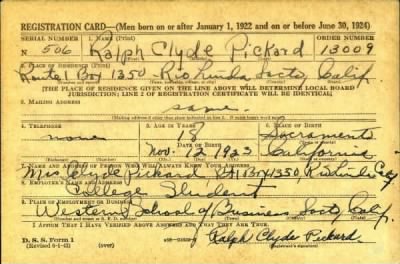 REGISTRATION CARD—(Men born on or after January 1, 1922 and on or before June 30, 1924)
SERIAL NUMBER 1. NAME (Print) ORDER NUMBER
N 506 Ralph Clyde Pickard 13009
2. PLACE OF RESIDENCE (Print)
Route 1 Box 1350 - Rio Linda Sacto, Calif.
[THE PLACE OF RESIDENCE GIVEN ON THE LINE ABOVE WILL DETERMINE LOCAL BOARD
JURISDICTION; LINE 2 OF REGISTRATION CERTIFICATE WILL BE IDENTICAL]
3. MAILING ADDRESS
same.
[Mailing address if other than place indicated on line 2. If same insert word same]
4. TELEPHONE 5. AGE IN YEARS 6. PLACE OF BIRTH
none 18 Sacramento
DATE OF BIRTH
Nov. 1923 California
7. NAME AND ADDRESS OF PERSON WHO WILL ALWAYS KNOW YOUR ADDRESS
Mrs Clyde Pickard Rt 1 Box 1350 Rio Linda
8. EMPLOYER'S NAME AND ADDRESS
College Student
9. PLACE OF EMPLOYMENT OR BUSINESS
Western School of Business Sacto, Calif.
I AFFIRM THAT I HAVE VERIFIED ABOVE ANSWERS AND THAT THEY ARE TRUE.
D. S. S. Form 1
(Revised 6-1-42) (over)
Ralph Clyde Pickard.